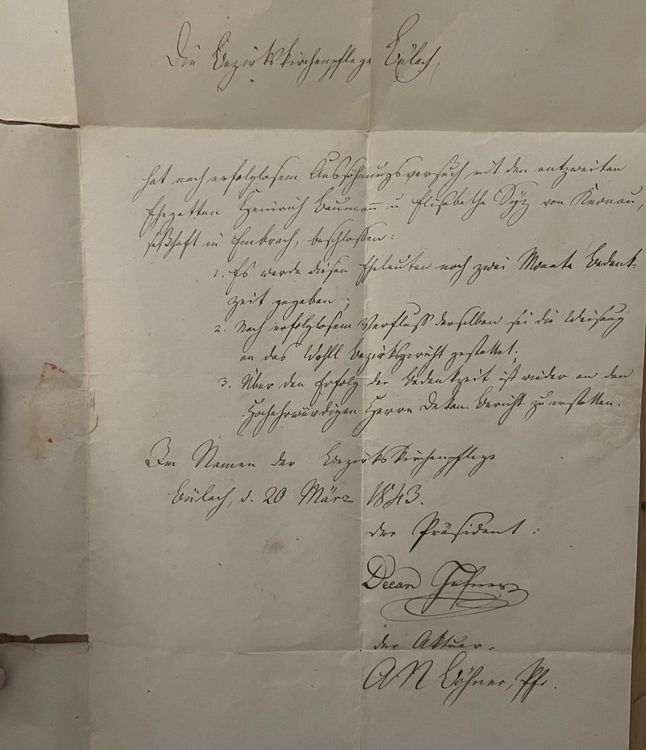 Die Bezirkskirchenpflege Bülach,
hat nach erfolglosem Aussöhnungsversuch mit den entzweiten
Ehegatten Heinrich Baumann u Elisabetha Sÿz von
seßhaft in Embrach, beschlossen:
1. Es werde diesen Eheleuten noch zwei Monate Bedenk-
zeit gegeben;
2. Nach erfolglosem Verfluss derselben sei die Weisung
an das Wohll Bezirksgericht gestattet;
3. Über den Erfolg der Bedenkzeit ist wieder an den
Hochehrwürdigen Herrn Dekan Bericht zu erstatten.
Im Namen der Bezirkskirchenpflege
Bülach, d. 20 März 1843.
der Präsident:
Decan
der Aktuar.
Pfr.